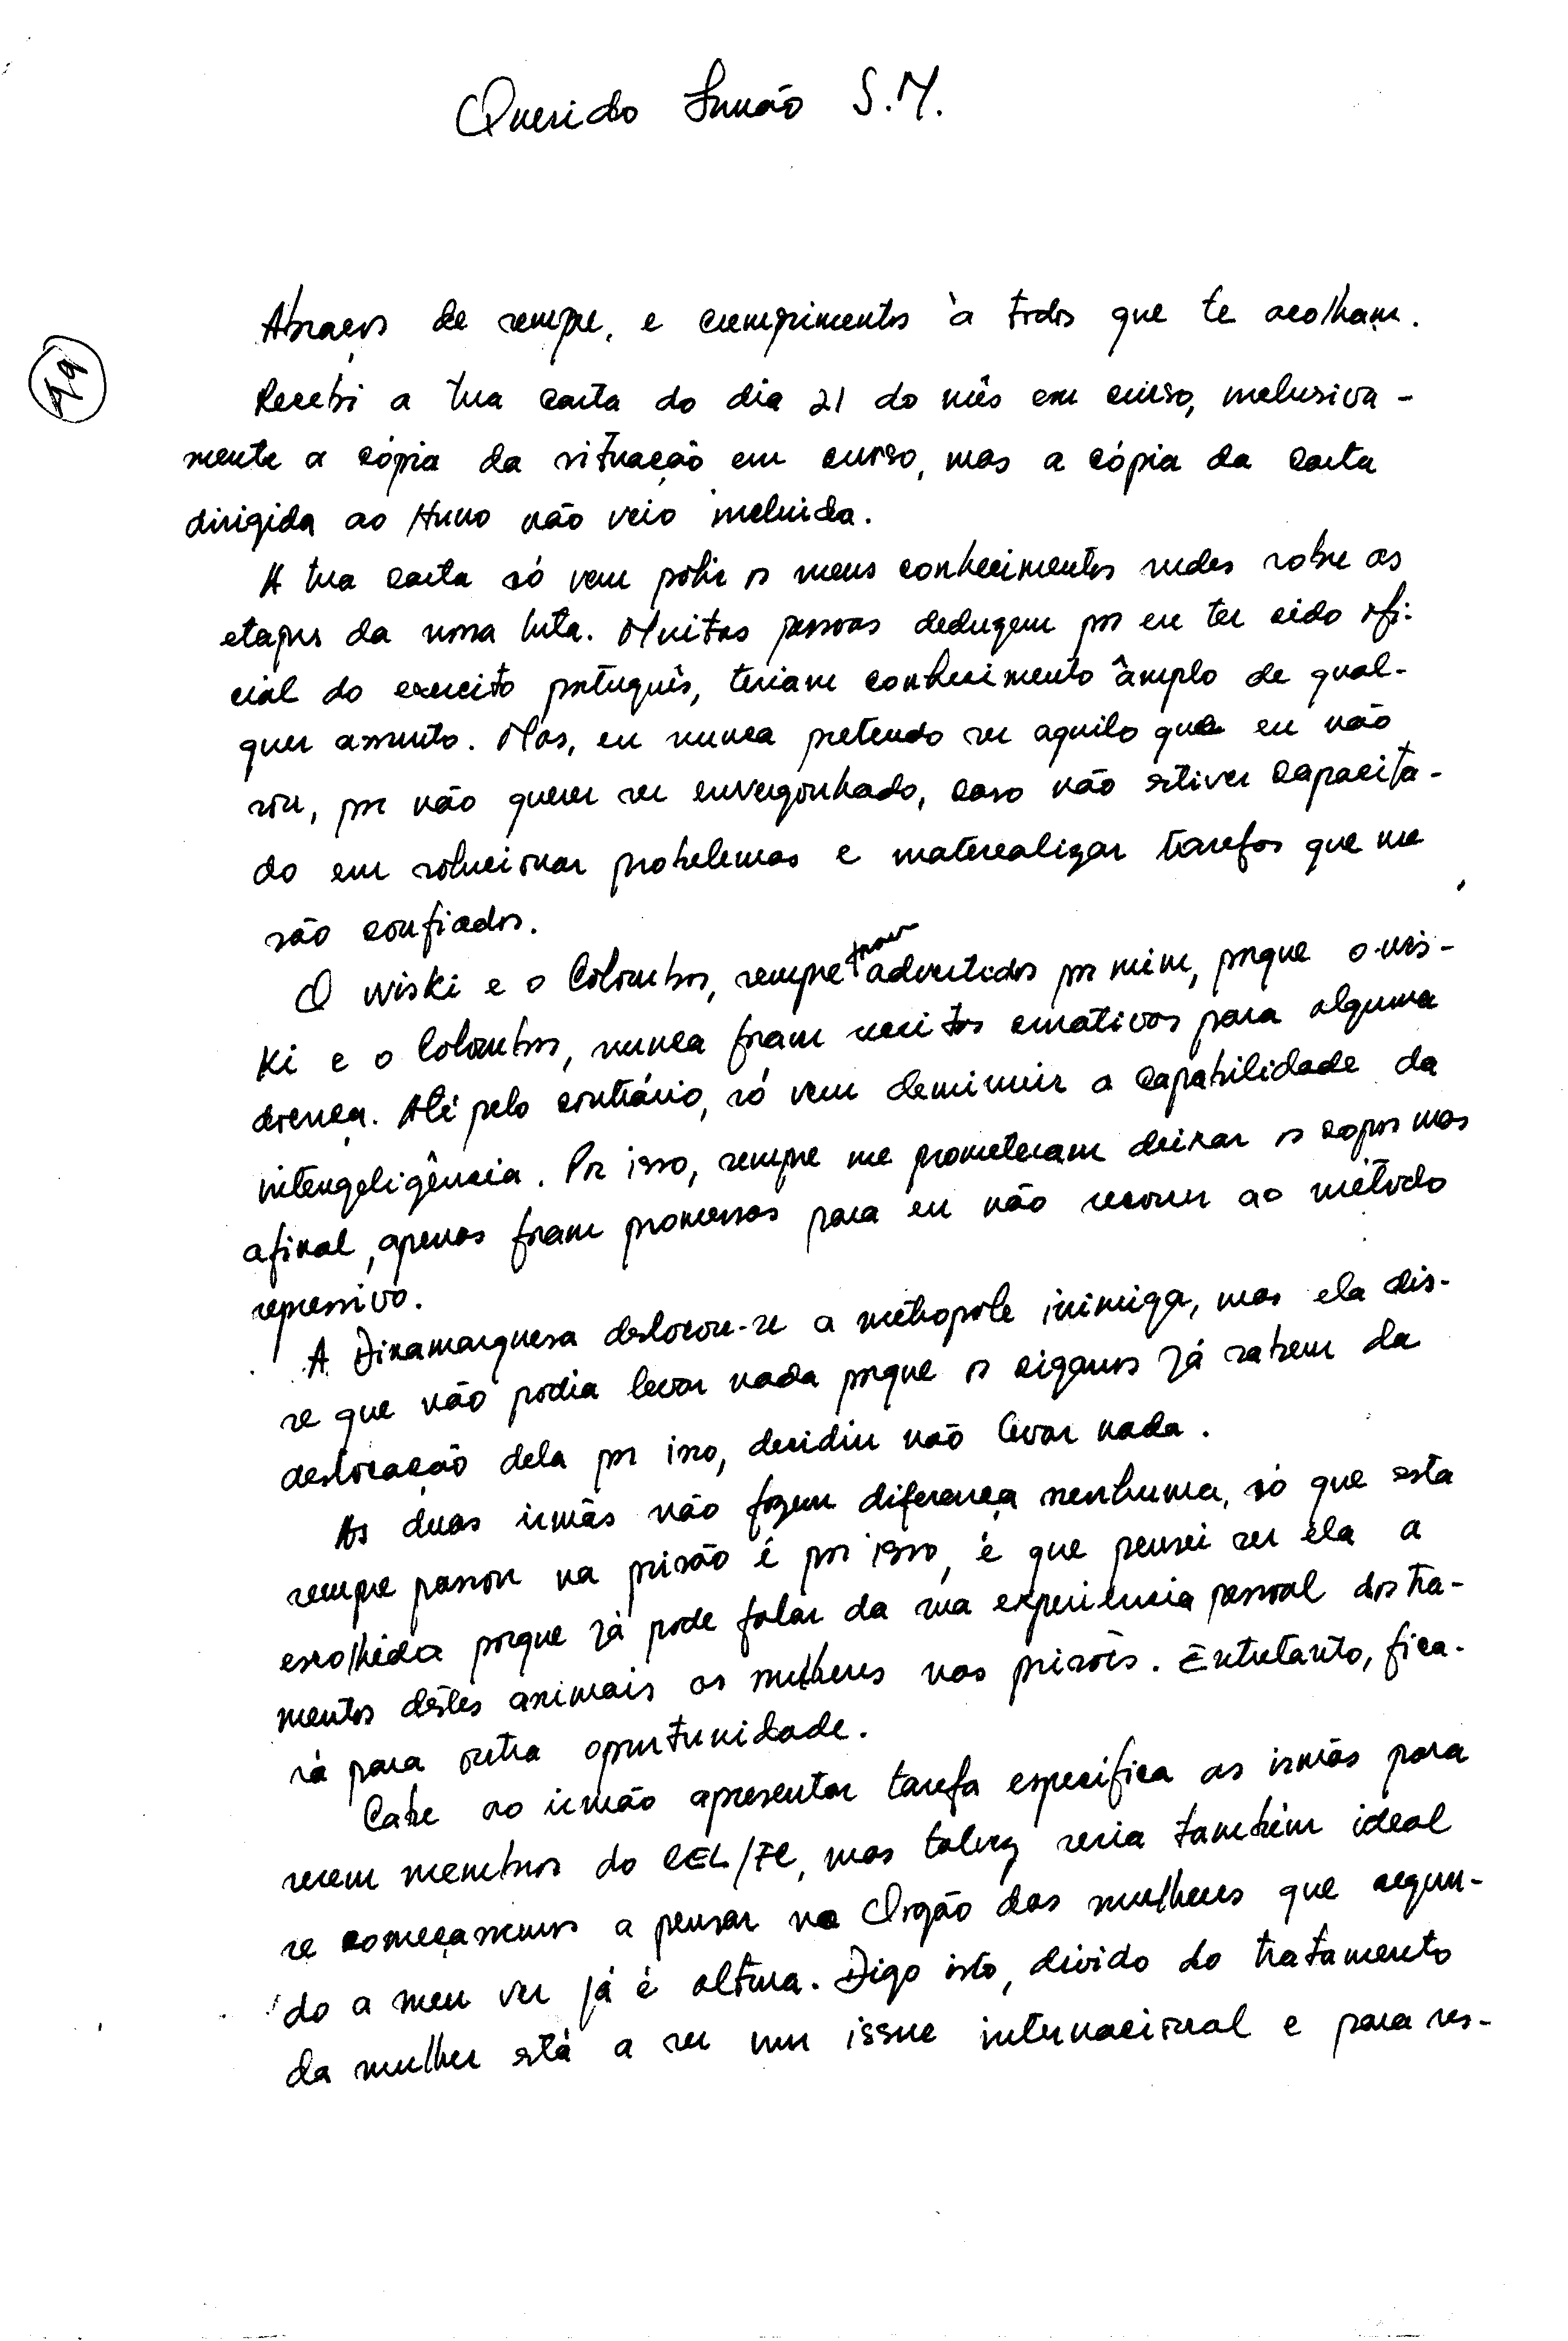 Querido Irmão S.M.
Abraços de sempre, e cumprimentos à todos que te acolham.
Recebi a tua carta do dia 21 do mês em curso, inclusiva-
mente a cópia da situação em curso, mas a cópia da carta
dirigida ao Huno não veio incluida.
A tua carta só vem polir os meus conhecimentos rudes sobre as
etapas da nossa luta. Muitas pessoas deduzem por eu ter sido ofi-
cial do exercito português, teriam conhecimento âmplo de qual-
quer assunto. Mas, eu nunca pretendo ser aquilo que eu não
sou, por não querer ser envergonhado, caso não estiver capacita-
do em solucionar probelemas e materealizar tarefas que me
são confiados.
O wiski e o Colombos, sempre foram advertidos por mim, porque o wis-
ki e o Colombos, nunca foram receitas curativos para alguma
doença. Até pelo contrário, só vem deminuir a capabilidade da
intengeligência. Por isso, sempre me prometeram deixar os copos mas
afinal, apenas foram promessas para eu não recorrer ao método
repressivo.
A Dinamarquesa deslocou-se a metropole inimiga, mas ela dis-
se que não podia levar nada porque os ciganos já sabem da
deslocação dela por isso, decidiu não levar nada.
As duas irmãs não fazem diferença nenhuma, só que esta
sempre passou na prisão é por isso, é que pensei ser ela a
escolhida porque já pode falar da sua experiencia pessoal dos tra-
mentos dêstes animais as mulheres nas prisois. Entretanto, fica-
rá para outra oportunidade.
Cabe ao irmão apresentar tarefa especifica as irmãs para
serem membros do CEL/FC, mas talvez seria também ideal
se começassemos a pensar no Orgão das mulheres que segun-
do a meu ver já é altura. Digo isto, divido do tratamento
da mulher está a ser um issue internacional e para res-